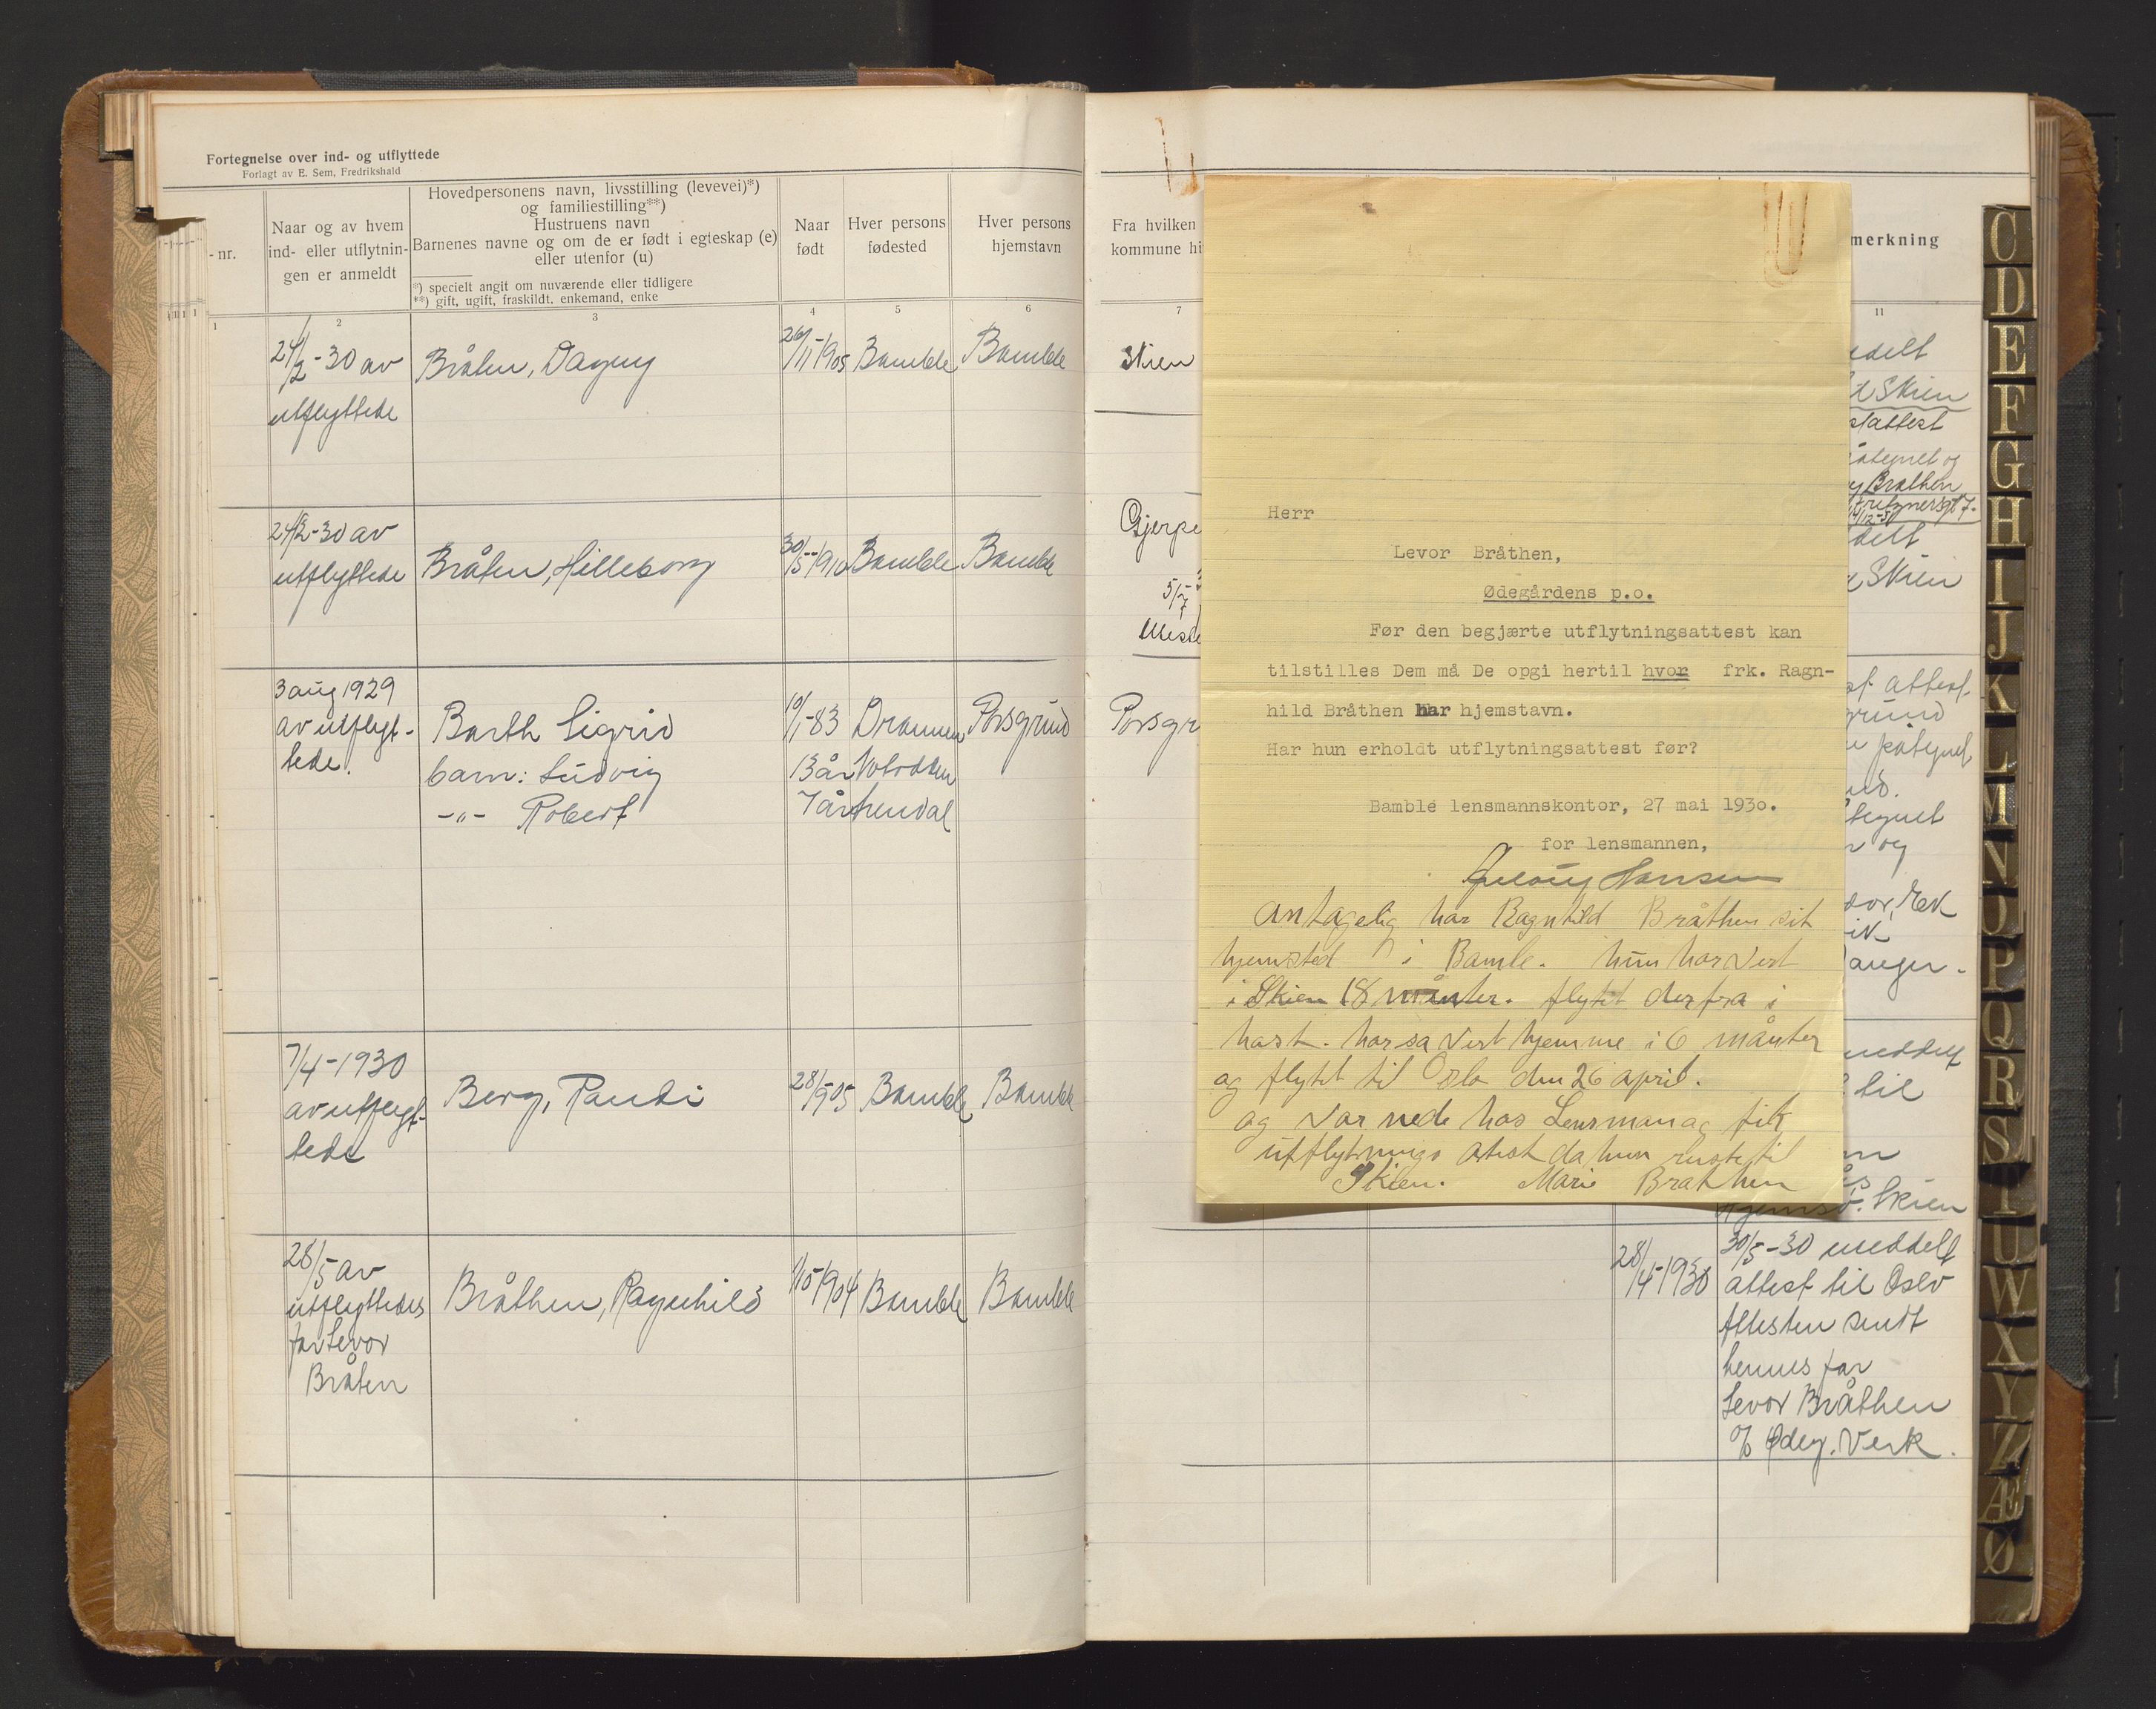 Fortegnelse over ind- og utflyttede
Forlagt av E. Sem, Fredrikshald
- nr.
Naar og av hvem
ind- eller utflytnin-
gen er anmeldt
Hovedpersonens navn, livsstilling (levevei)*)
og familiestilling**)
Hustruens navn
Barnenes navne og om de er født i egteskap (e)
eller utenfor (u)
*) specielt angit om nuværende eller tidligere
**) gift, ugift, fraskildt, enkemand, enke
Naar
født
Hver persons
fødested
Hver persons
hjemstavn
1 2 3 4 5 6
24/2-30 av
utflyttede
Bråten, Dagny
26/11-1905 Bamble Bamble
24/2-30 av
utflyttede
Bråten, Hilleborg
30/5-1910 Bamble Bamble
3 aug 1929
av utflyt-
tede.
Barth Sigrid
barn: Ludvig
-"- Robert
10/1-83 Drammen Porsgrund
13 år Notodden
7 år
7/4-1930
av utflyt-
tede
Berg, Randi
28/5-05 Bamble Bamble
28/5 av
utflyttedes
far Levor
Bråten
Bråthen, Ragnhild
1/5-1904 Bamble Bamble
Fra hvilken
kommune hi
7
Skien
Gjerpe
5/7-3
Porsgr
Herr
Levor Bråthen,
Ødegårdens p.o.
Før den begjærte utflytningsattest kan
tilstilles Dem må De opgi hertil hvor frk. Ragn-
hild Bråthen har hjemstavn.
Har hun erholdt utflytningsattest før?
Bamble lensmannskontor, 27 mai 1930.
for lensmannen,
Hansen
Antagelig har Ragnhild Bråthen sit
hjemsted i Bamle. hun har vert
i Skien 18 månter. flytet derfra i
høst. har sa vert hjemme i 6 månter
og flytet til Oslo den 26 april.
og var nede hos Lensman og fik
utflytnings atest da hun reiste til
Skien. Marie Brathen
merkning
11
edelt
t Skien
attest
åtegnet og
y Bråthen
delt
Skien
attest
grund
påtegnet
tegnet
og
meddelt
til
Hjemst. Skien
28/4-1930
30/5-30 meddelt
attest til Oslo
Attesten sendt
hennes far
Levor Bråthen
Ødeg. Verk.
C
D
E
F
G
H
I
J
K
L
M
N
O
P
Q
R
S
T
U
W
X
Y
Z
Æ
Ø